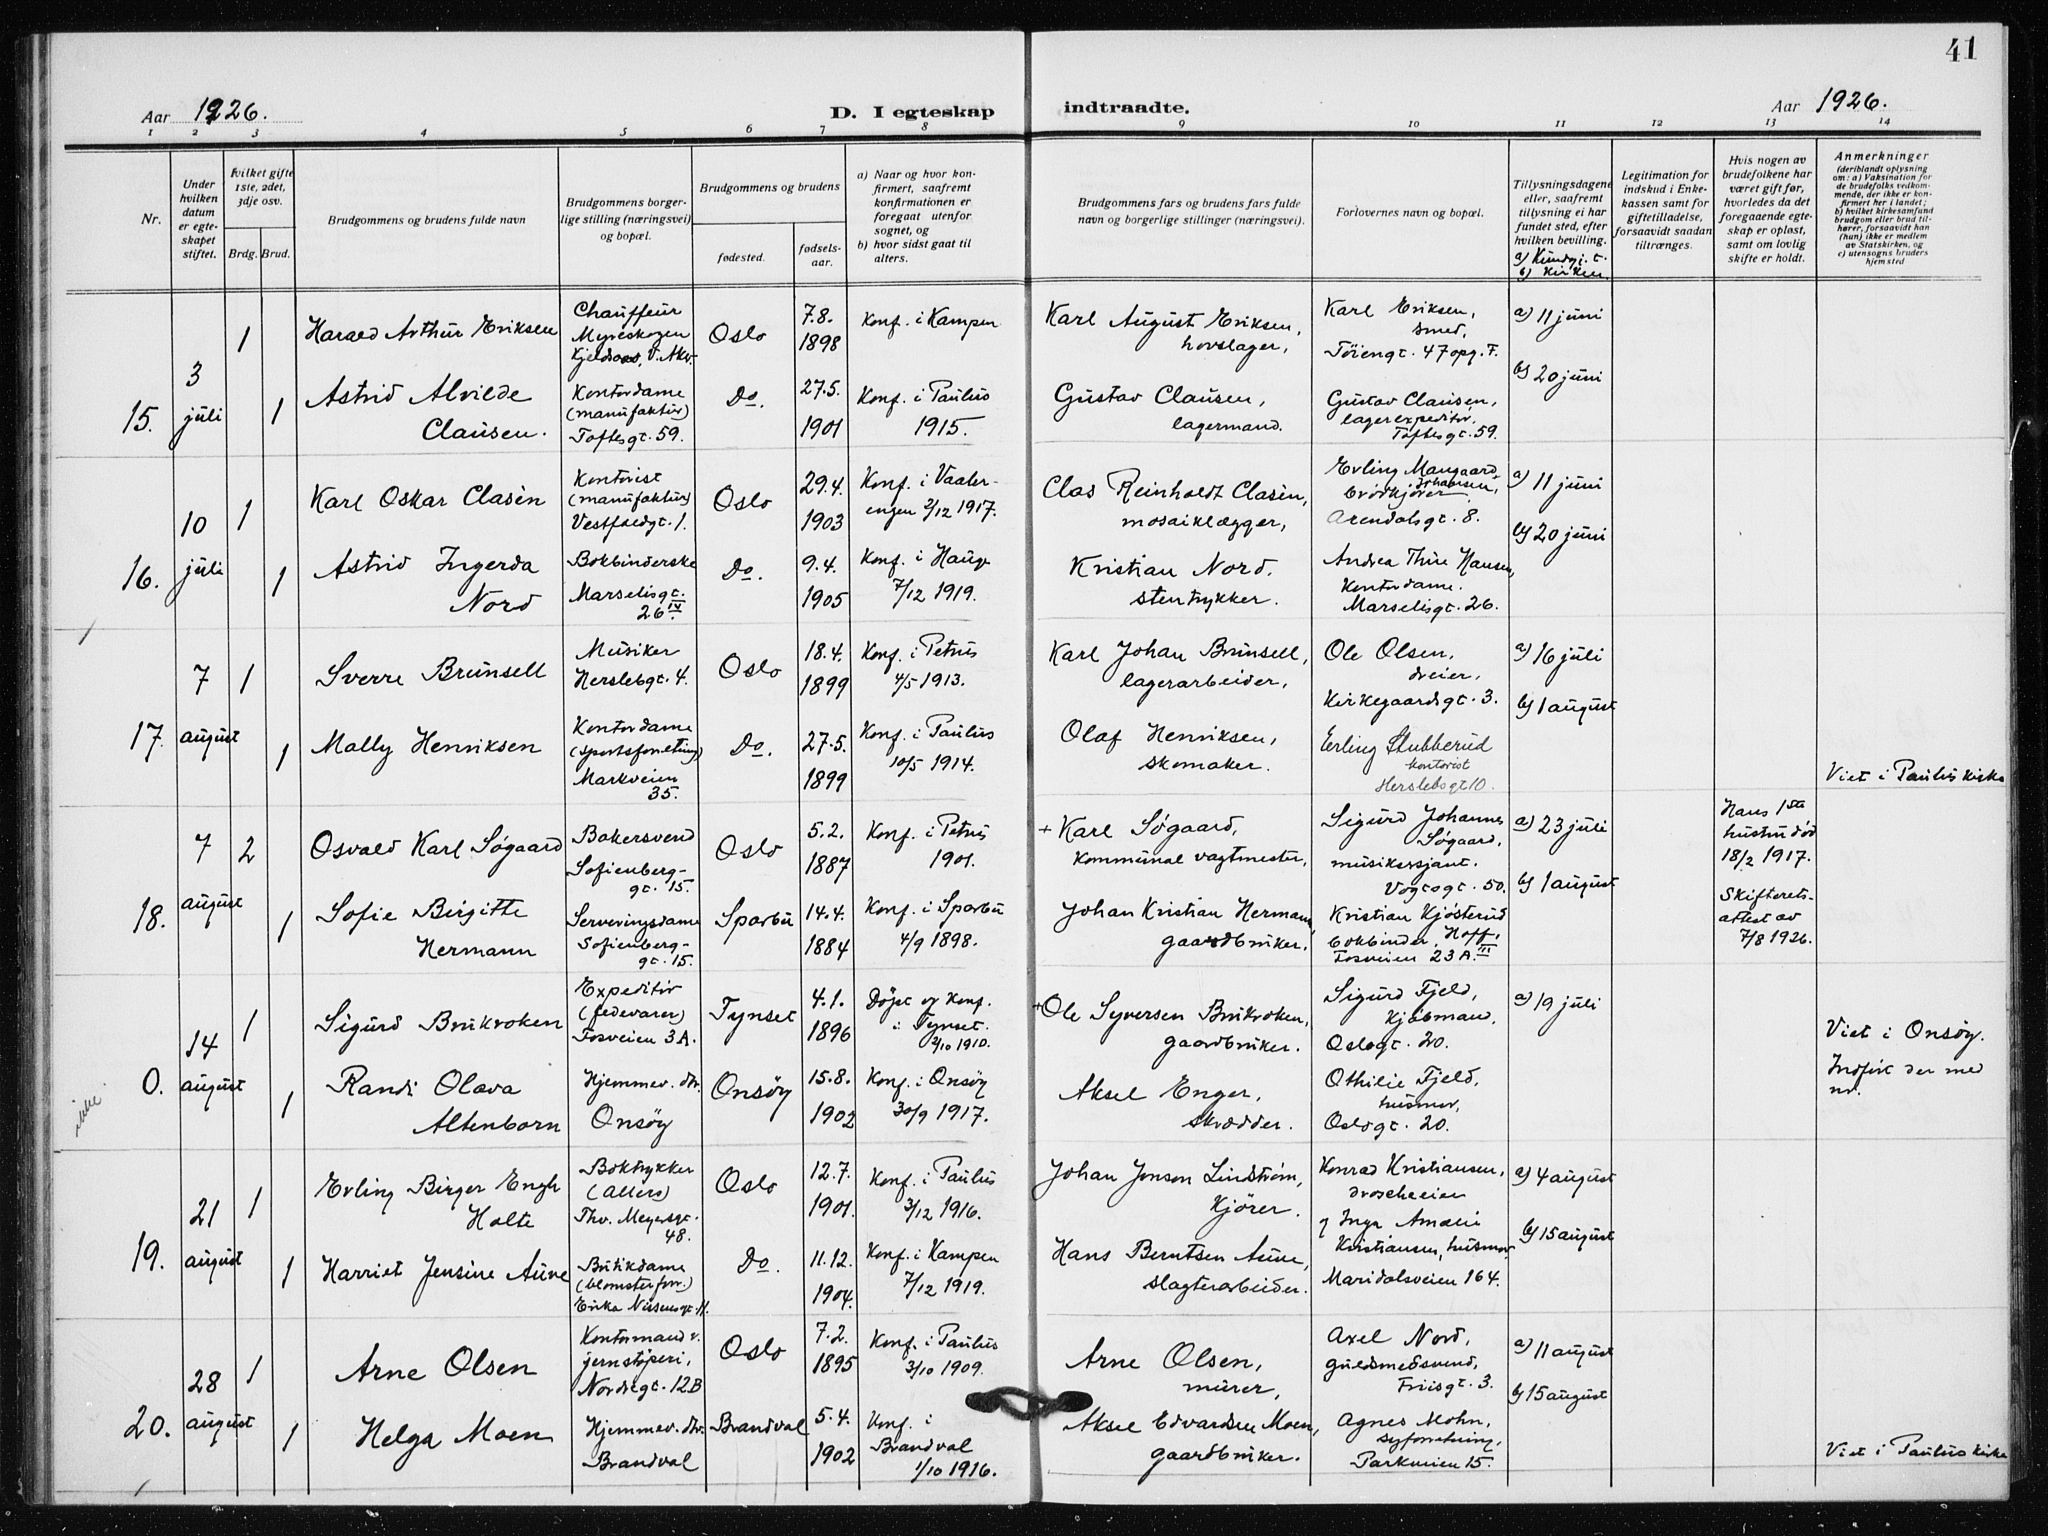 41
Aar 1926.
D. I egteskap indtraadte.
Aar 1926.
1 2 3 4 5 6 7 8 9 10 11 12 13 14
Nr.
Under
hvilken
datum
er egte-
skapet
stiftet.
hvilket gifte
1ste, 2det,
3dje osv.
Brdg. Brud.
Brudgommens og brudens fulde navn
Brudgommens borger-
lige stilling (næringsvei)
og bopæl.
Brudgommens og brudens
fødested.
fødsels-
aar.
a) Naar og hvor kon-
firmert, saafremt
konfirmationen er
foregaat utenfor
sognet, og
b) hvor sidst gaat til
alters.
Brudgommens fars og brudens fars fulde
navn og borgerlige stillinger (næringsvei).
Forlovernes navn og bopæl.
Tillysningsdagene
eller, saafremt
tillysning ei har
fundet sted, efter
hvilken bevilling.
a) Kundgj. t.
b) Kirken.
Legitimation for
indskud i Enke-
kassen samt for
giftetilladelse,
forsaavidt saadan
tiltrænges.
Hvis nogen av
brudefolkene har
været gift før,
hvorledes da det
foregaaende egte-
skap er opløst,
samt om lovlig
skifte er holdt.
Anmerkninger
(deriblandt oplysning
om: a) Vaksination for
de brudefolks vedkom-
mende, der ikke er kon-
firmert her i landet;
b) hvilket kirkesamfund
brudgom eller brud til-
hører, forsaavidt han
(hun) ikke er medlem
av Statskirken, og
c) utensogns bruders
hjemsted
15.
3
juli
1
Harald Arthur Eriksen
Chauffeur
Myreskogen
Kjelsaas, V. Aker.
Oslo
7.8.
1898
Konf. i Kampen
Karl August Eriksen,
hovslager,
Karl Eriksen,
smed,
Töiengt. 47 opg. F.
a) 11 juni
b) 20 juni
1
Astrid Alvilde
Clausen.
Kontordame
(manufaktur)
Toftesgt. 59.
Do.
27.5.
1901
Konf. i Paulus
1915.
Gustav Clausen,
lagermand.
Gustav Clausen,
lagerexpeditör,
Toftesgt. 59.
16.
10
juli
1
Karl Oskar Clasèn
Kontorist
(manufaktur)
Vestfoldgt. 1.
Oslo
29.4.
1903
Konf. i Vaaler-
engen 2/12 1917.
Clas Reinholdt Clasèn,
mosaiklægger,
Erling Mangaard
Johansen,
brödkjörer
Arendalsgt. 8.
a) 11 juni
b) 20 juni
1
Astrid Ingerda
Nord
Bokbinderske
Marselisgt.
26 IV
Do.
9.4.
1905
Konf. i Hauge
7/12 1919.
Kristian Nord.
stentrykker.
Andrea Thire Hansen,
Kontordame.
Marselisgt. 26.
17.
7
august
1
Sverre Brunsell
Musiker
Herslebgt. 4.
Oslo
18.4.
1899
Konf. i Petrus
4/5 1913.
Karl Johan Brunsell,
lagerarbeider,
Ole Olsen,
dreier,
Kirkegaardsgt. 3.
a) 16 juli
b) 1 august
1
Mally Henriksen
Kontordame
(sportsforretning)
Markveien
35.
Do.
27.5.
1899
Konf. i Paulus
10/5 1914.
Olaf Henriksen,
skomaker.
Erling Stubberud
kontorist
Herslebsgt 10.
Viet i Paulus kirke
18.
7
august
2
Osvald Karl Søgaard
Bakersvend
Sofienberg-
gt. 15.
Oslo
5.2.
1887
Konf. i Petrus
1901.
+ Karl Søgaard,
kommunal vagtmester,
Sigurd Johannes
Søgaard,
musikersjant.
Vogtsgt. 50.
a) 23 juli
b) 1 august
Hans 1ste
hustru död
18/2 1917.
Skifterets-
attest av
7/8 1926.
1
Sofie Birgitte
Hermann
Serveringsdame
Sofienberg-
gt. 15.
Sparbu
14.4.
1884
Konf. i Sparbu
4/9 1898.
Johan Kristian Hermann,
gaardbruker,
Kristian Kjösterud
bokbinder, Hoff,
Fosveien 23 A. III
ikke
0.
14
august
1
Sigurd Brukroken
Expeditör
(fedevarer)
Fosveien 3A.
Tynset
4.1.
1896
Döpt og konf.
i Tynset.
2/10 1910.
+ Ole Syversen Brukroken,
gaardbruker.
Sigurd Fjeld,
kjöbmand,
Oslogt. 20.
a) 19 juli
Viet i Onsöy.
Indfört der med
nr.
1
Randi Olava
Altenborn
Hjemmev. dtr.
Onsöy
Onsöy
15.8.
1902
Konf. i Onsöy
30/9 1917.
Aksel Enger,
skrædder.
Othilie Fjeld,
husmor,
Oslogt. 20.
19.
21
august
1
Erling Birger Engh
Holte
Boktrykker
(Allers)
Thv. Meyersgt.
48.
Oslo
12.7.
1901.
Konf. i Paulus
3/12 1916.
Johan Jonson Lindström,
Kjörer.
Konrad Kristiansen,
droscheeier
a) 4 august
b) 15 august
1
Harriet Jensine Aune
Butikdame
(blomsterforr.)
Erika Nissensgt. 11.
Do.
11.12.
1904.
Konf. i Kampen
7/12 1919.
Hans Berntsen Aune,
slagterarbeider.
og Inga Amalie
Kristiansen, husmor
Maridalsveien 164.
20.
28
august
1
Arne Olsen
Kontormand v.
jernstöperi,
Nordregt. 12B
Oslo
7.2.
1895
Konf. i Paulus
3/10 1909.
Arne Olsen,
murer,
Axel Nord,
guldsmedsvend,
Friisgt. 3.
a) 11 august
b) 15 august
1
Helga Moen
Hjemmev. dtr.
Brandval
Brandval
5.4.
1902
Konf. i
Brandval
1/10 1916.
Aksel Edvardsen Moen,
gaardbruker.
Agnes Mohn,
syforretning,
Parkveien 15.
Viet i Paulus kirke